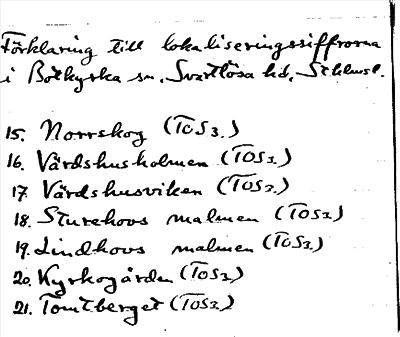 Förklaring till lokaliseringssiffrorna
i Botkyrka sn, Svartlösa hd, Sthlms l.
15. Norrskog (TOS3.)
16. Värdshusholmen (TOS3.)
17. Värdshusviken (TOS3.)
18. Sturehovs malmen (TOS3.)
19. Lindhovs malmen (TOS3.)
20. Kyrkogården (TOS3.)
21. Tomtberget (TOS3.)